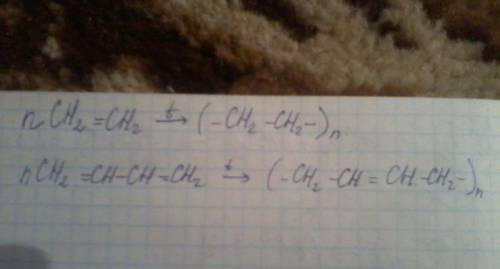 nCH₂=CH₂ →ᵗ (-CH₂-CH₂-)ₙ
nCH₂=CH-CH=CH₂ →ᵗ (-CH₂-CH=CH-CH₂-)ₙ